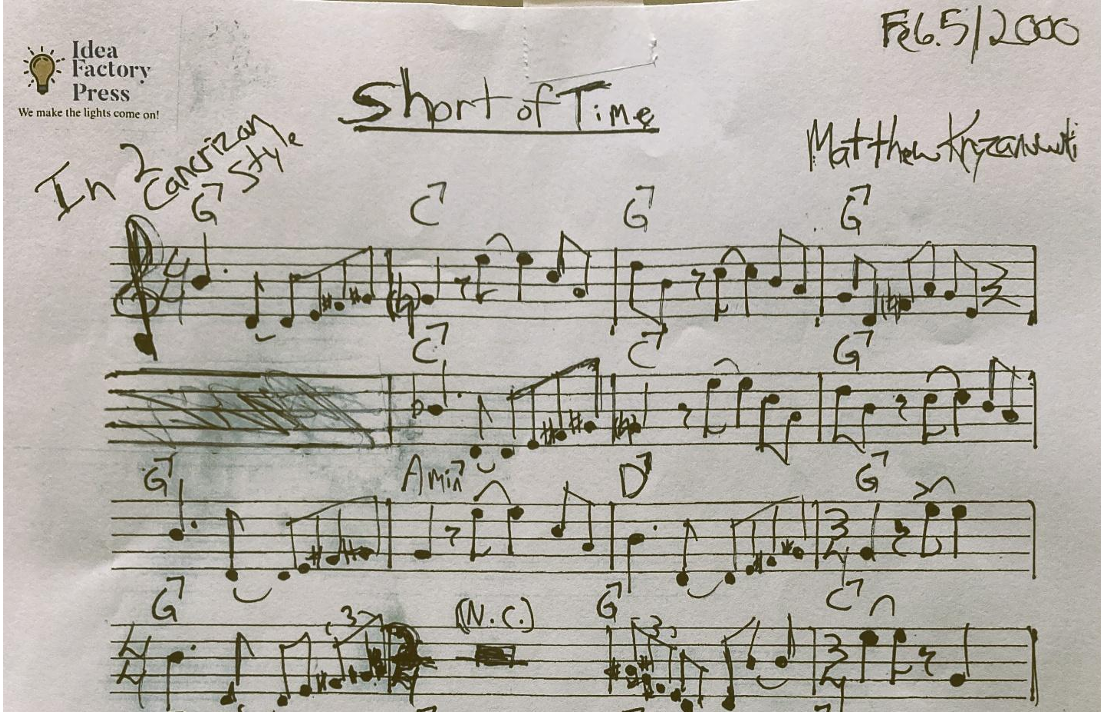 Idea
Factory
Press
We make the lights come on!
Feb. 5/2000
Short of Time
In 2
Cancrizan
Style
Matthew
G7 C7 G7 G7
4
4
C7 C7 G7
G7 Amin7 D7 G7
3
4
G7 (N.C.) G7 C7
4
4
3
3
3
4